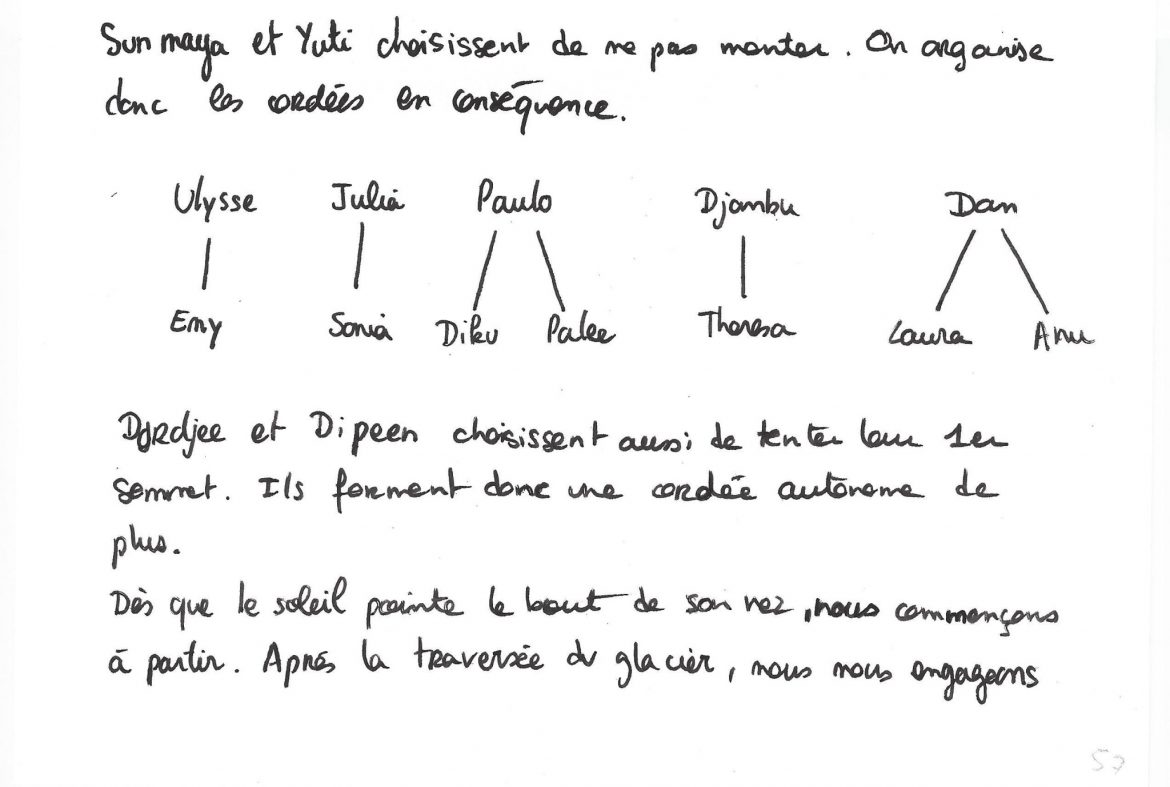 Sunmaya et Yuti choisissent de ne pas monter. On organise
donc les cordées en conséquence.
Ulysse Julia Paulo Djambu Dan
Emy Sonia Diku Palee Theresa Laura Anu
Dordjee et Dipeen choisissent aussi de tenter leur 1er
sommet. Ils forment donc une cordée autonome de
plus.
Dès que le soleil pointe le bout de son nez, nous commençons
à partir. Après la traversée du glacier, nous nous engageons
57